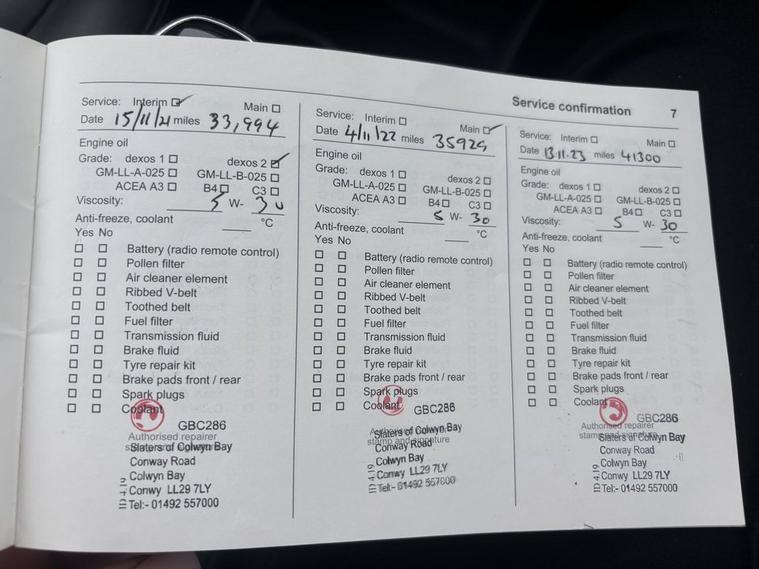 Service confirmation 7
Service: Interim ☑ Main ☐
Date 15/11/21 miles 33,994
Engine oil
Grade: dexos 1 ☐ dexos 2 ☑
GM-LL-A-025 ☐ GM-LL-B-025 ☐
ACEA A3 ☐ B4 ☐ C3 ☐
Viscosity: 5 W- 30
Anti-freeze, coolant ____ °C
Yes No
☐ ☐ Battery (radio remote control)
☐ ☐ Pollen filter
☐ ☐ Air cleaner element
☐ ☐ Ribbed V-belt
☐ ☐ Toothed belt
☐ ☐ Fuel filter
☐ ☐ Transmission fluid
☐ ☐ Brake fluid
☐ ☐ Tyre repair kit
☐ ☐ Brake pads front / rear
☐ ☐ Spark plugs
☐ ☐ Coolant
GBC286
Authorised repairer
Slaters of Colwyn Bay
Conway Road
Colwyn Bay
Conwy LL29 7LY
Tel:- 01492 557000
Service: Interim ☐ Main ☑
Date 4/11/22 miles 35929
Engine oil
Grade: dexos 1 ☐ dexos 2 ☐
GM-LL-A-025 ☐ GM-LL-B-025 ☐
ACEA A3 ☐ B4 ☐ C3 ☐
Viscosity: 5 W- 30
Anti-freeze, coolant ____ °C
Yes No
☐ ☐ Battery (radio remote control)
☐ ☐ Pollen filter
☐ ☐ Air cleaner element
☐ ☐ Ribbed V-belt
☐ ☐ Toothed belt
☐ ☐ Fuel filter
☐ ☐ Transmission fluid
☐ ☐ Brake fluid
☐ ☐ Tyre repair kit
☐ ☐ Brake pads front / rear
☐ ☐ Spark plugs
☐ ☐ Coolant
GBC286
Authorised repairer
Slaters of Colwyn Bay
stamp and signature
Conway Road
Colwyn Bay
Conwy LL29 7LY
Tel:- 01492 557000
Service: Interim ☐ Main ☐
Date 13.11.23 miles 41300
Engine oil
Grade: dexos 1 ☐ dexos 2 ☐
GM-LL-A-025 ☐ GM-LL-B-025 ☐
ACEA A3 ☐ B4 ☐ C3 ☐
Viscosity: 5 W- 30
Anti-freeze, coolant ____ °C
Yes No
☐ ☐ Battery (radio remote control)
☐ ☐ Pollen filter
☐ ☐ Air cleaner element
☐ ☐ Ribbed V-belt
☐ ☐ Toothed belt
☐ ☐ Fuel filter
☐ ☐ Transmission fluid
☐ ☐ Brake fluid
☐ ☐ Tyre repair kit
☐ ☐ Brake pads front / rear
☐ ☐ Spark plugs
☐ ☐ Coolant
GBC286
Authorised repairer
Slaters of Colwyn Bay
Conway Road
Colwyn Bay
Conwy LL29 7LY
Tel:- 01492 557000